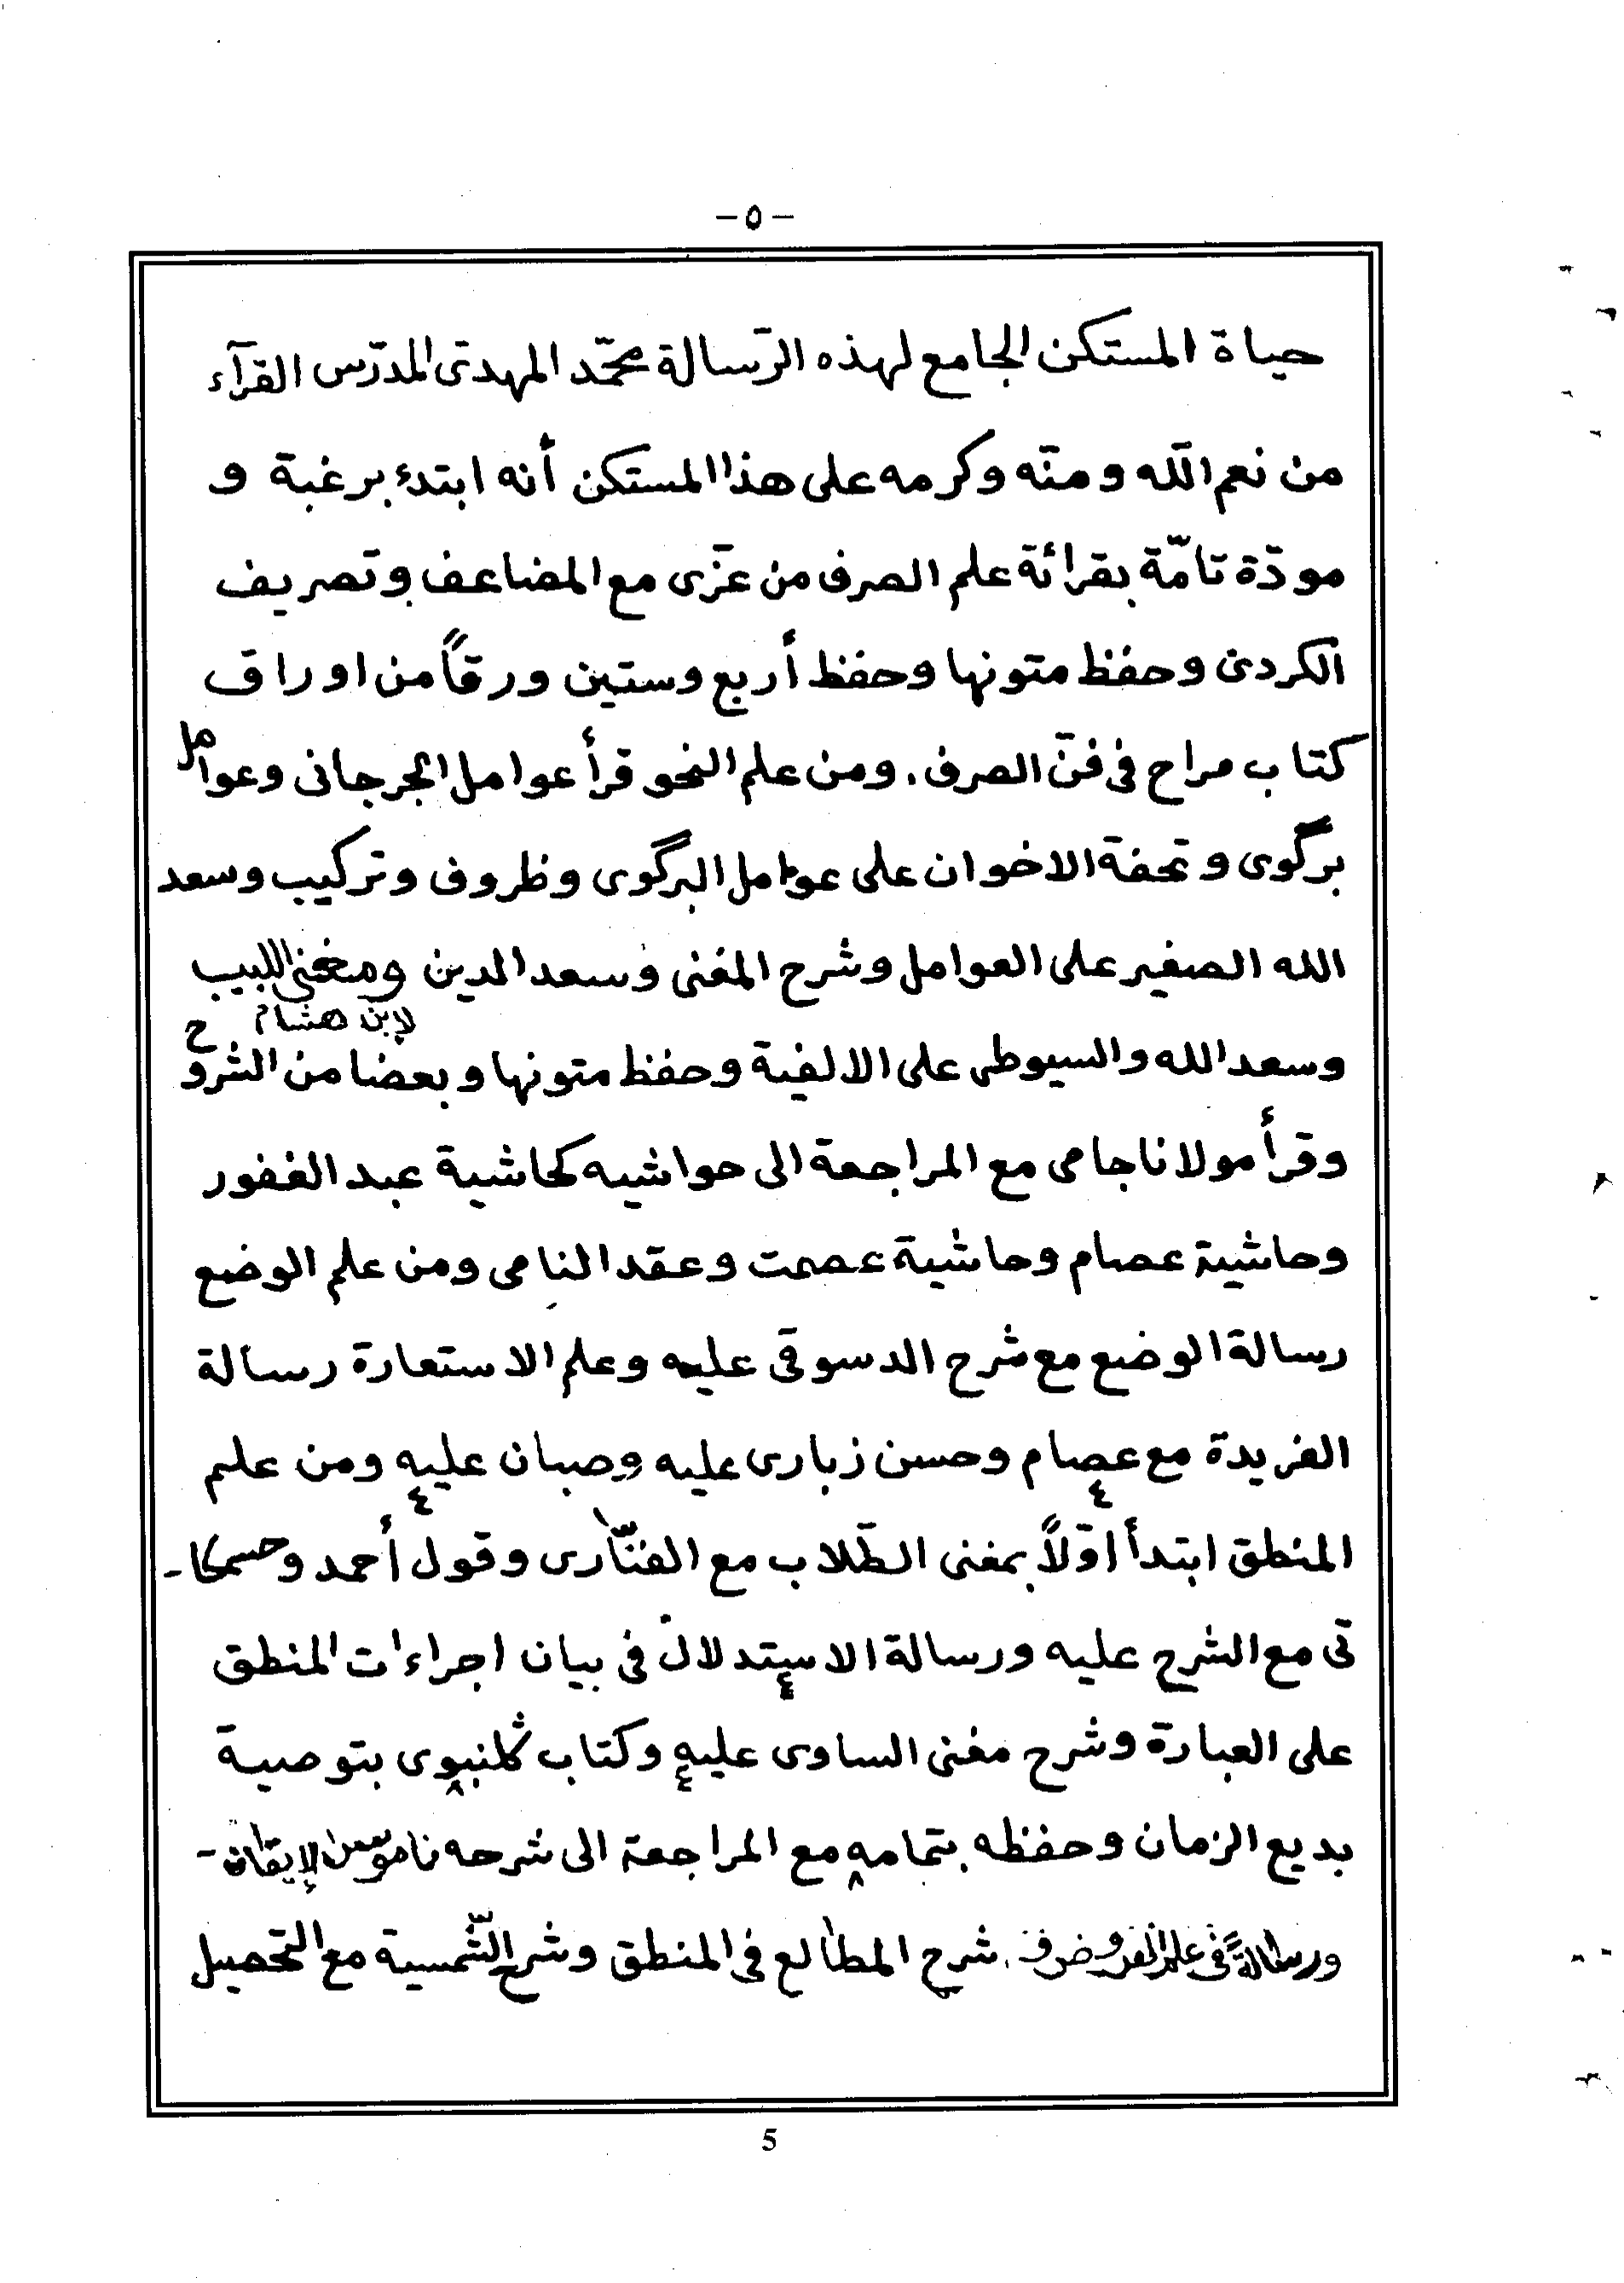 -٥-
حياة المستكن الجامع لهذه الرّسالة محمّد المهدىّ المدرّس القرآء
من نعم اللّه ومنّه وكرمه على هذا المستكن أنه ابتدء برغبة و
مودّة تامّة بقرائة علم الصرف من عزّى مع المضاعف وتصريف
الكردى وحفظ متونها وحفظ أربع وستين ورقاً من اوراق
كتاب مراح فى فنّ الصرف. ومن علم النحو قرأ عوامل الجرجانى وعوامل
برگوى وتحفة الاخوان على عوامل البرگوى وظروف وتركيب وسعد
الله الصغير على العوامل وشرح المغنى وسعد الدين ومغنى اللبيب
لإبن هشام
وسعد الله والسيوطى على الالفية وحفظ متونها وبعضا من الشروح
وقرأ مولانا جامى مع المراجعة الى حواشيه كحاشية عبد الغفور
وحاشية عصام وحاشية عصمت وعقد النامى ومن علم الوضع
رسالة الوضع مع شرح الدسوقى عليه وعلم الاستعارة رسالة
الفريدة مع عصام وحسن زبارى عليه وصبان عليه ومن علم
المنطق ابتدأ اوّلاً بمغنى الطّلاب مع الفنّارى وقول أحمد وحسمكا-
تى مع الشرح عليه ورسالة الاستدلال فى بيان اجراءات المنطق
على العبارة وشرح مغنى الساوى عليه وكتاب گلنبوى بتوصية
بديع الزمان وحفظه بتمامه مع المراجعة الى شرحه ناموس الإيقان-
ورسالةً فى علم شرح المطالع فى المنطق وشرح الشّمسية مع التحصيل
5